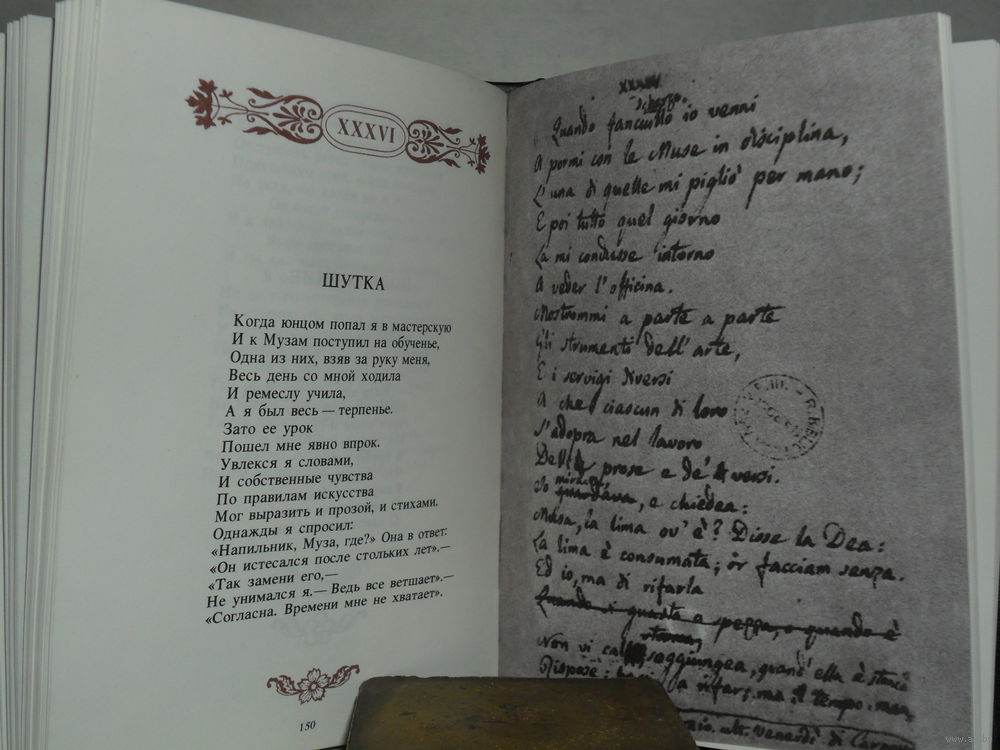 XXXVI
ШУТКА
Когда юнцом попал я в мастерскую
И к Музам поступил на обученье,
Одна из них, взяв за руку меня,
Весь день со мной ходила
И ремеслу учила,
А я был весь — терпенье.
Зато ее урок
Пошел мне явно впрок.
Увлекся я словами,
И собственные чувства
По правилам искусства
Мог выразить и прозой, и стихами.
Однажды я спросил:
«Напильник, Муза, где?» Она в ответ:
«Он истесался после стольких лет».—
«Так замени его,—
Не унимался я.— Ведь все ветшает».—
«Согласна. Времени мне не хватает».
150
Quando fanciullo io venni
A pormi con le Muse in disciplina,
L'una di quelle mi pigliò per mano;
E poi tutto quel giorno
La mi condusse intorno
A veder l'officina.
Mostrommi a parte a parte
Gli strumenti dell'arte,
E i servigi diversi
A che ciascun di loro
S'adopra nel lavoro
Delle prose e de' versi.
Io mirava, e chiedea:
Musa, la lima ov'è? Disse la Dea:
La lima è consumata; or facciam senza.
Ed io, ma di rifarla
Non vi cal, soggiungea, quand'ella è stanca
Rispose: rifar; ma il tempo manca